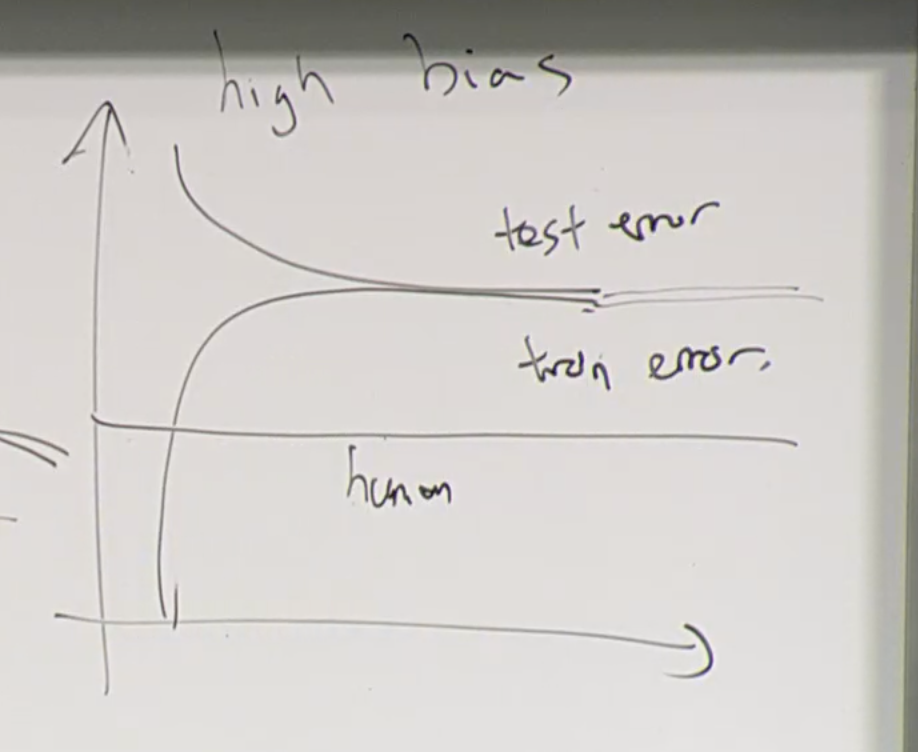 high bias
test error
train error.
human